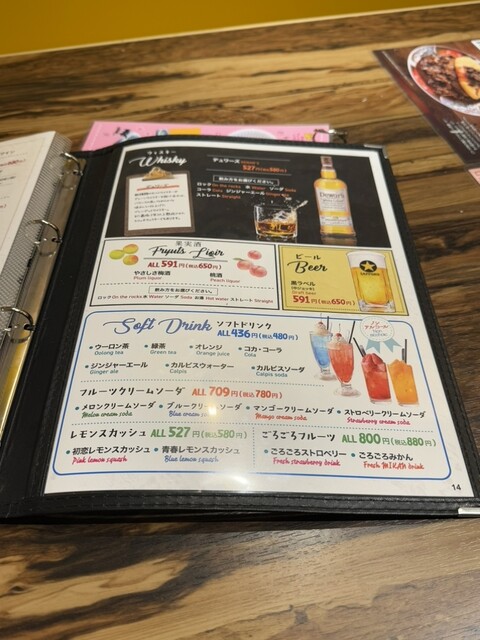 ウィスキー
Whisky
デュワーズ
527円(税580円)
飲み方をお選びください。
ロック On the rocks 水 Water ソーダ Soda
コーラ Cola ジンジャーエール Ginger ale
ストレート Straight
Dewar's
果実酒
Fryuls Liqir
ALL 591円(税込650円)
やさしさ梅酒
Plum liquor
桃酒
Peach liquor
飲み方をお選びください。
ロック On the rocks 水 Water ソーダ Soda お湯 Hot water ストレート Straight
ビール
Beer
黒ラベル
Draft beer
591円(税込650円)
Soft Drink ソフトドリンク
ALL 436円(税込480円)
• ウーロン茶
Oolong tea
• 緑茶
Green tea
• オレンジ
Orange juice
• コカ・コーラ
Cola
• ジンジャーエール
Ginger ale
• カルピスウォーター
Calpis
• カルピスソーダ
Calpis soda
フルーツクリームソーダ ALL 709円(税込780円)
• メロンクリームソーダ
Melon cream soda
• ブルークリームソーダ
Blue cream soda
• マンゴークリームソーダ
Mango cream soda
• ストロベリークリームソーダ
Strawberry cream soda
レモンスカッシュ ALL 527円(税込580円)
• 初恋レモンスカッシュ
Pink lemon squash
• 青春レモンスカッシュ
Blue lemon squash
ごろごろフルーツ ALL 800円(税込880円)
• ごろごろストロベリー
Fresh strawberry drink
• ごろごろみかん
Fresh MIKAN drink
14